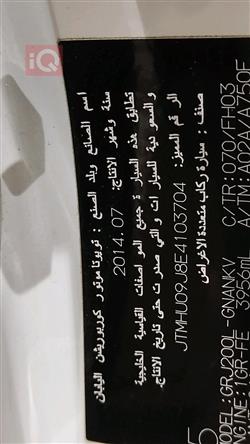 iQ
اسم الصانع وبلد الصنع : تويوتا موتور كوربوريشن اليابان
سنة وشهر الانتاج: 2014.07
تطابق هذه السيارة جميع المواصفات القياسية الخليجية
والسعودية للسيارات والتي صدرت حتى تاريخ الانتاج
الرقم المميز: JTMHU09J8E4103704
صنف : سيارة ركاب متعددة الاغراض
C/TR:070/FH03
MODEL:GRJ200L-GNANKV
3956mL